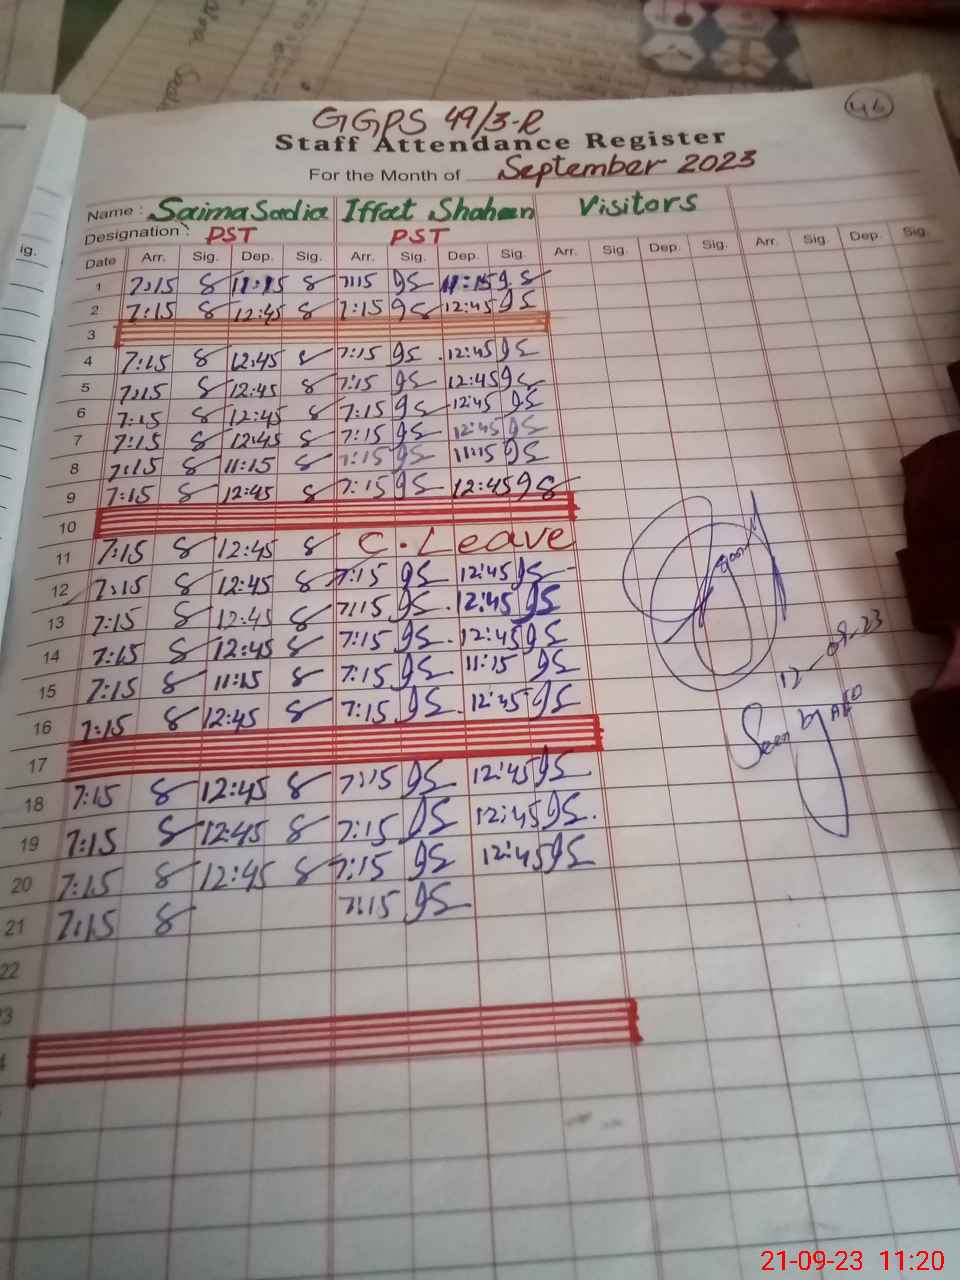 46
GGPS 49/3-R
Staff Attendance Register
For the Month of September 2023
Name : Saima Sadia Iffat Shaheen Visitors
Designation : PST PST
ig.
Date Arr. Sig. Dep. Sig. Arr. Sig. Dep. Sig. Arr. Sig. Dep. Sig. Arr. Sig. Dep. Sig.
1 7:15 8 11:15 8 7:15 9S 11:15 9S
2 7:15 8 12:45 8 7:15 9S 12:45 9S
3
4 7:15 8 12:45 8 7:15 9S 12:45 9S
5 7:15 8 12:45 8 7:15 9S 12:45 9S
6 7:15 8 12:45 8 7:15 9S 12:45 9S
7 7:15 8 12:45 8 7:15 9S 12:45 9S
8 7:15 8 11:15 8 7:15 9S 11:15 9S
9 7:15 8 12:45 8 7:15 9S 12:45 9S
10
11 7:15 8 12:45 8 C. Leave
12 7:15 8 12:45 8 7:15 9S 12:45 9S
13 7:15 8 12:45 8 7:15 9S 12:45 9S
14 7:15 8 12:45 8 7:15 9S 12:45 9S
15 7:15 8 11:15 8 7:15 9S 11:15 9S
16 7:15 8 12:45 8 7:15 9S 12:45 9S
17
18 7:15 8 12:45 8 7:15 9S 12:45 9S
19 7:15 8 12:45 8 7:15 9S 12:45 9S
20 7:15 8 12:45 8 7:15 9S 12:45 9S
21 7:15 8 7:15 9S
22
3
4
12-09-23
Seen by AEO
21-09-23 11:20